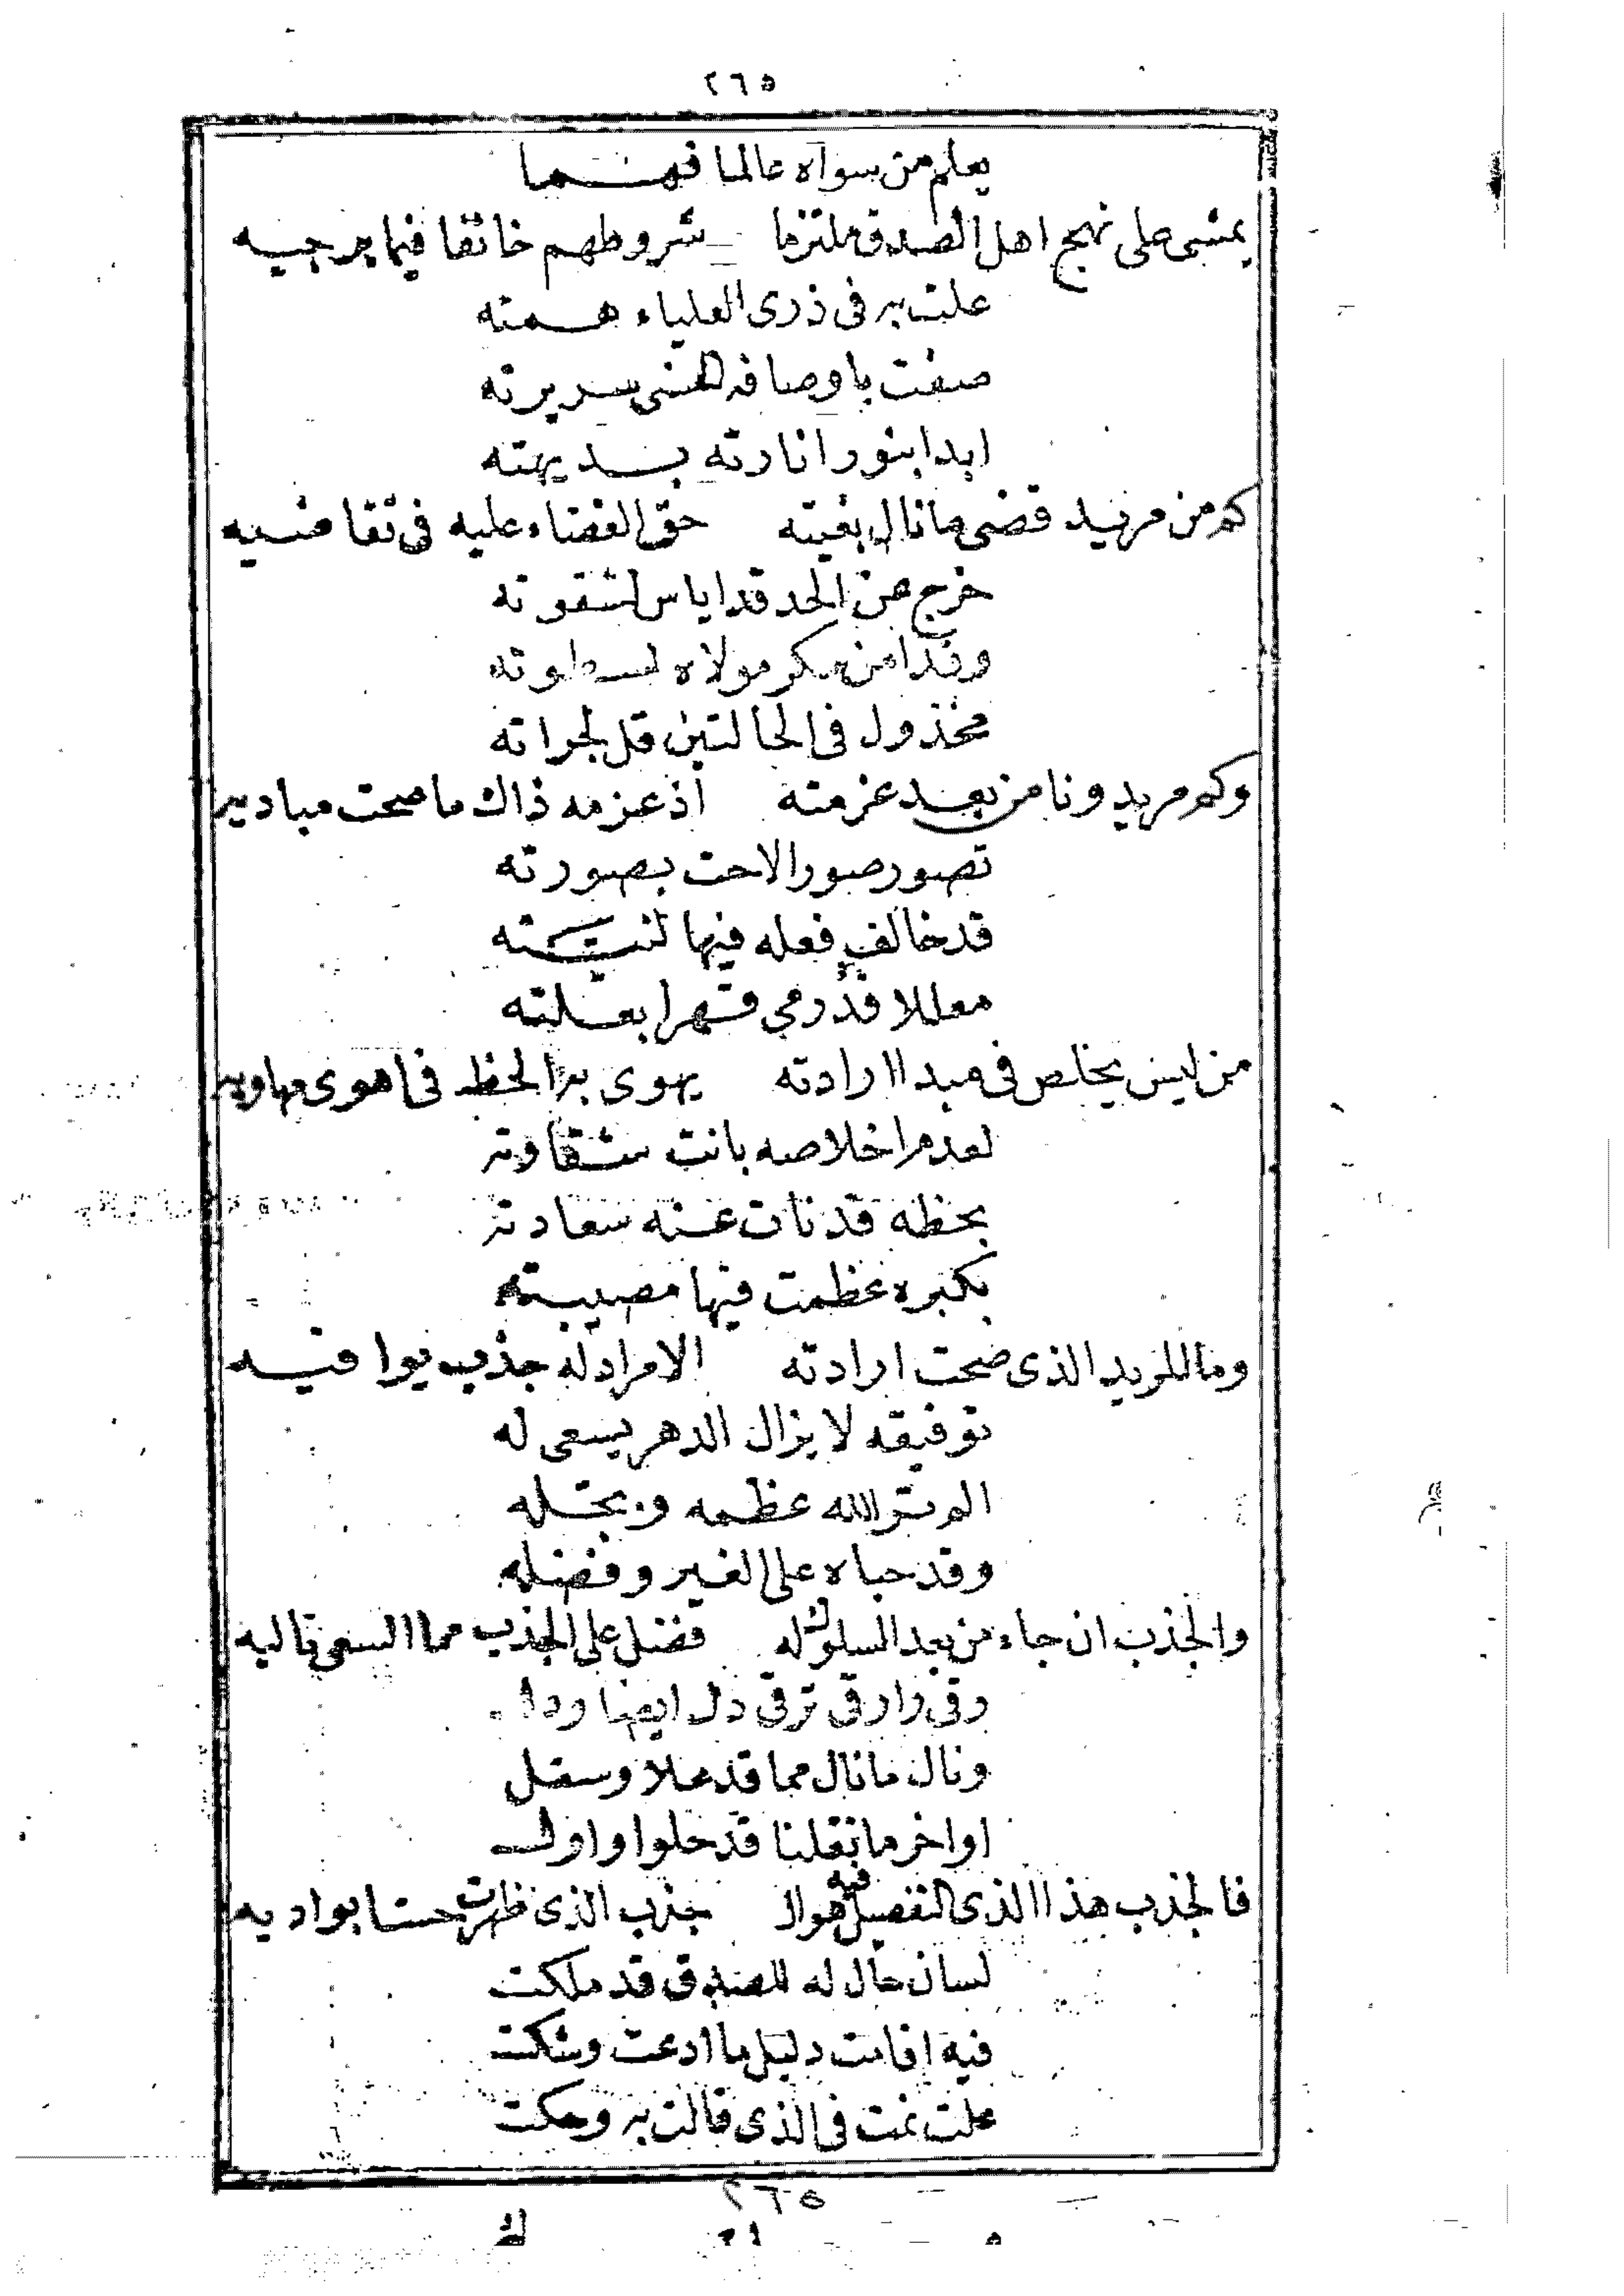 ٢٦٥
يعلم من سواه عالما فهما
يمشى على نهج اهل الصدق ملتزما شروطهم خائفا فيما يرجيه
علت به فى ذرى العلياء همته
صفت باوصافه الحسنى سريرته
ابدا بنور انارته بديهته
كم من مريد قضى ما نال بغيته حق القضاء عليه فى تقاضيه
خرج عن الحد قد اياس لشقوته
وذا من مكر مولاه لسطوته
مخذول فى الحالتين قل لجراته
وكم مريد ونا من بعد عزمته اذ عزمه ذاك ما صحت مباديه
تصور صور الاحت بصورته
قد خالف فعله فيها لنيته
معللا قد رمي قهرا بعلته
من ليس يخلص فى مبدا ارادته يهوى به الحظ فى اهوى مهاويه
لعدم اخلاصه بانت شقاوته
بحظه قد نات عنه سعادته
بكبره عظمت فيها مصيبته
وما للمريد الذى صحت ارادته الا مراد له جذب يوافيه
توفيقه لا يزال الدهر يسعى له
الم تر الله عظمه وبجله
وقد حباه على الغير وفضله
والجذب ان جاء من بعد السلوك له فضل على الجذب مما السعى تاليه
ترقى ايضا
ونال ما نال مما قد علا وسفل
اواخر ما نقلنا قد حلوا واول
فالجذب هذا الذى التفصيل فيه هوال جذب الذى ظهرت حسنا بواديه
لسان حال له للصدق قد ملكت
فيه اقامت دليل ما ادعت وشكت
علت نمت فى الذى قالت به وحكت
٢٦٥